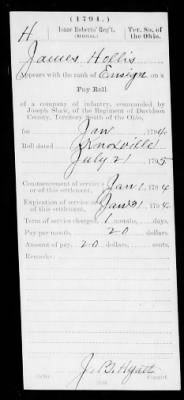 (1794.)
H
Isaac Roberts' Reg't.
(MILITIA.)
Ter. So. of the Ohio.
James Hollis
Appears with the rank of Ensign on a
Pay Roll
of a company of infantry, commanded by
Joseph Shaw, of the Regiment of Davidson
County, Territory South of the Ohio,
for Jan , 1794.
Roll dated Knoxville
July 21 , 1795
Commencement of service or of this settlement, Jan 1, 1794
Expiration of service or of this settlement, Jan 31, 1794.
Term of service charged, 1 months, days.
Pay per month, 20 dollars, cents.
Amount of pay, 20 dollars, cents.
Remarks:
Copyist.